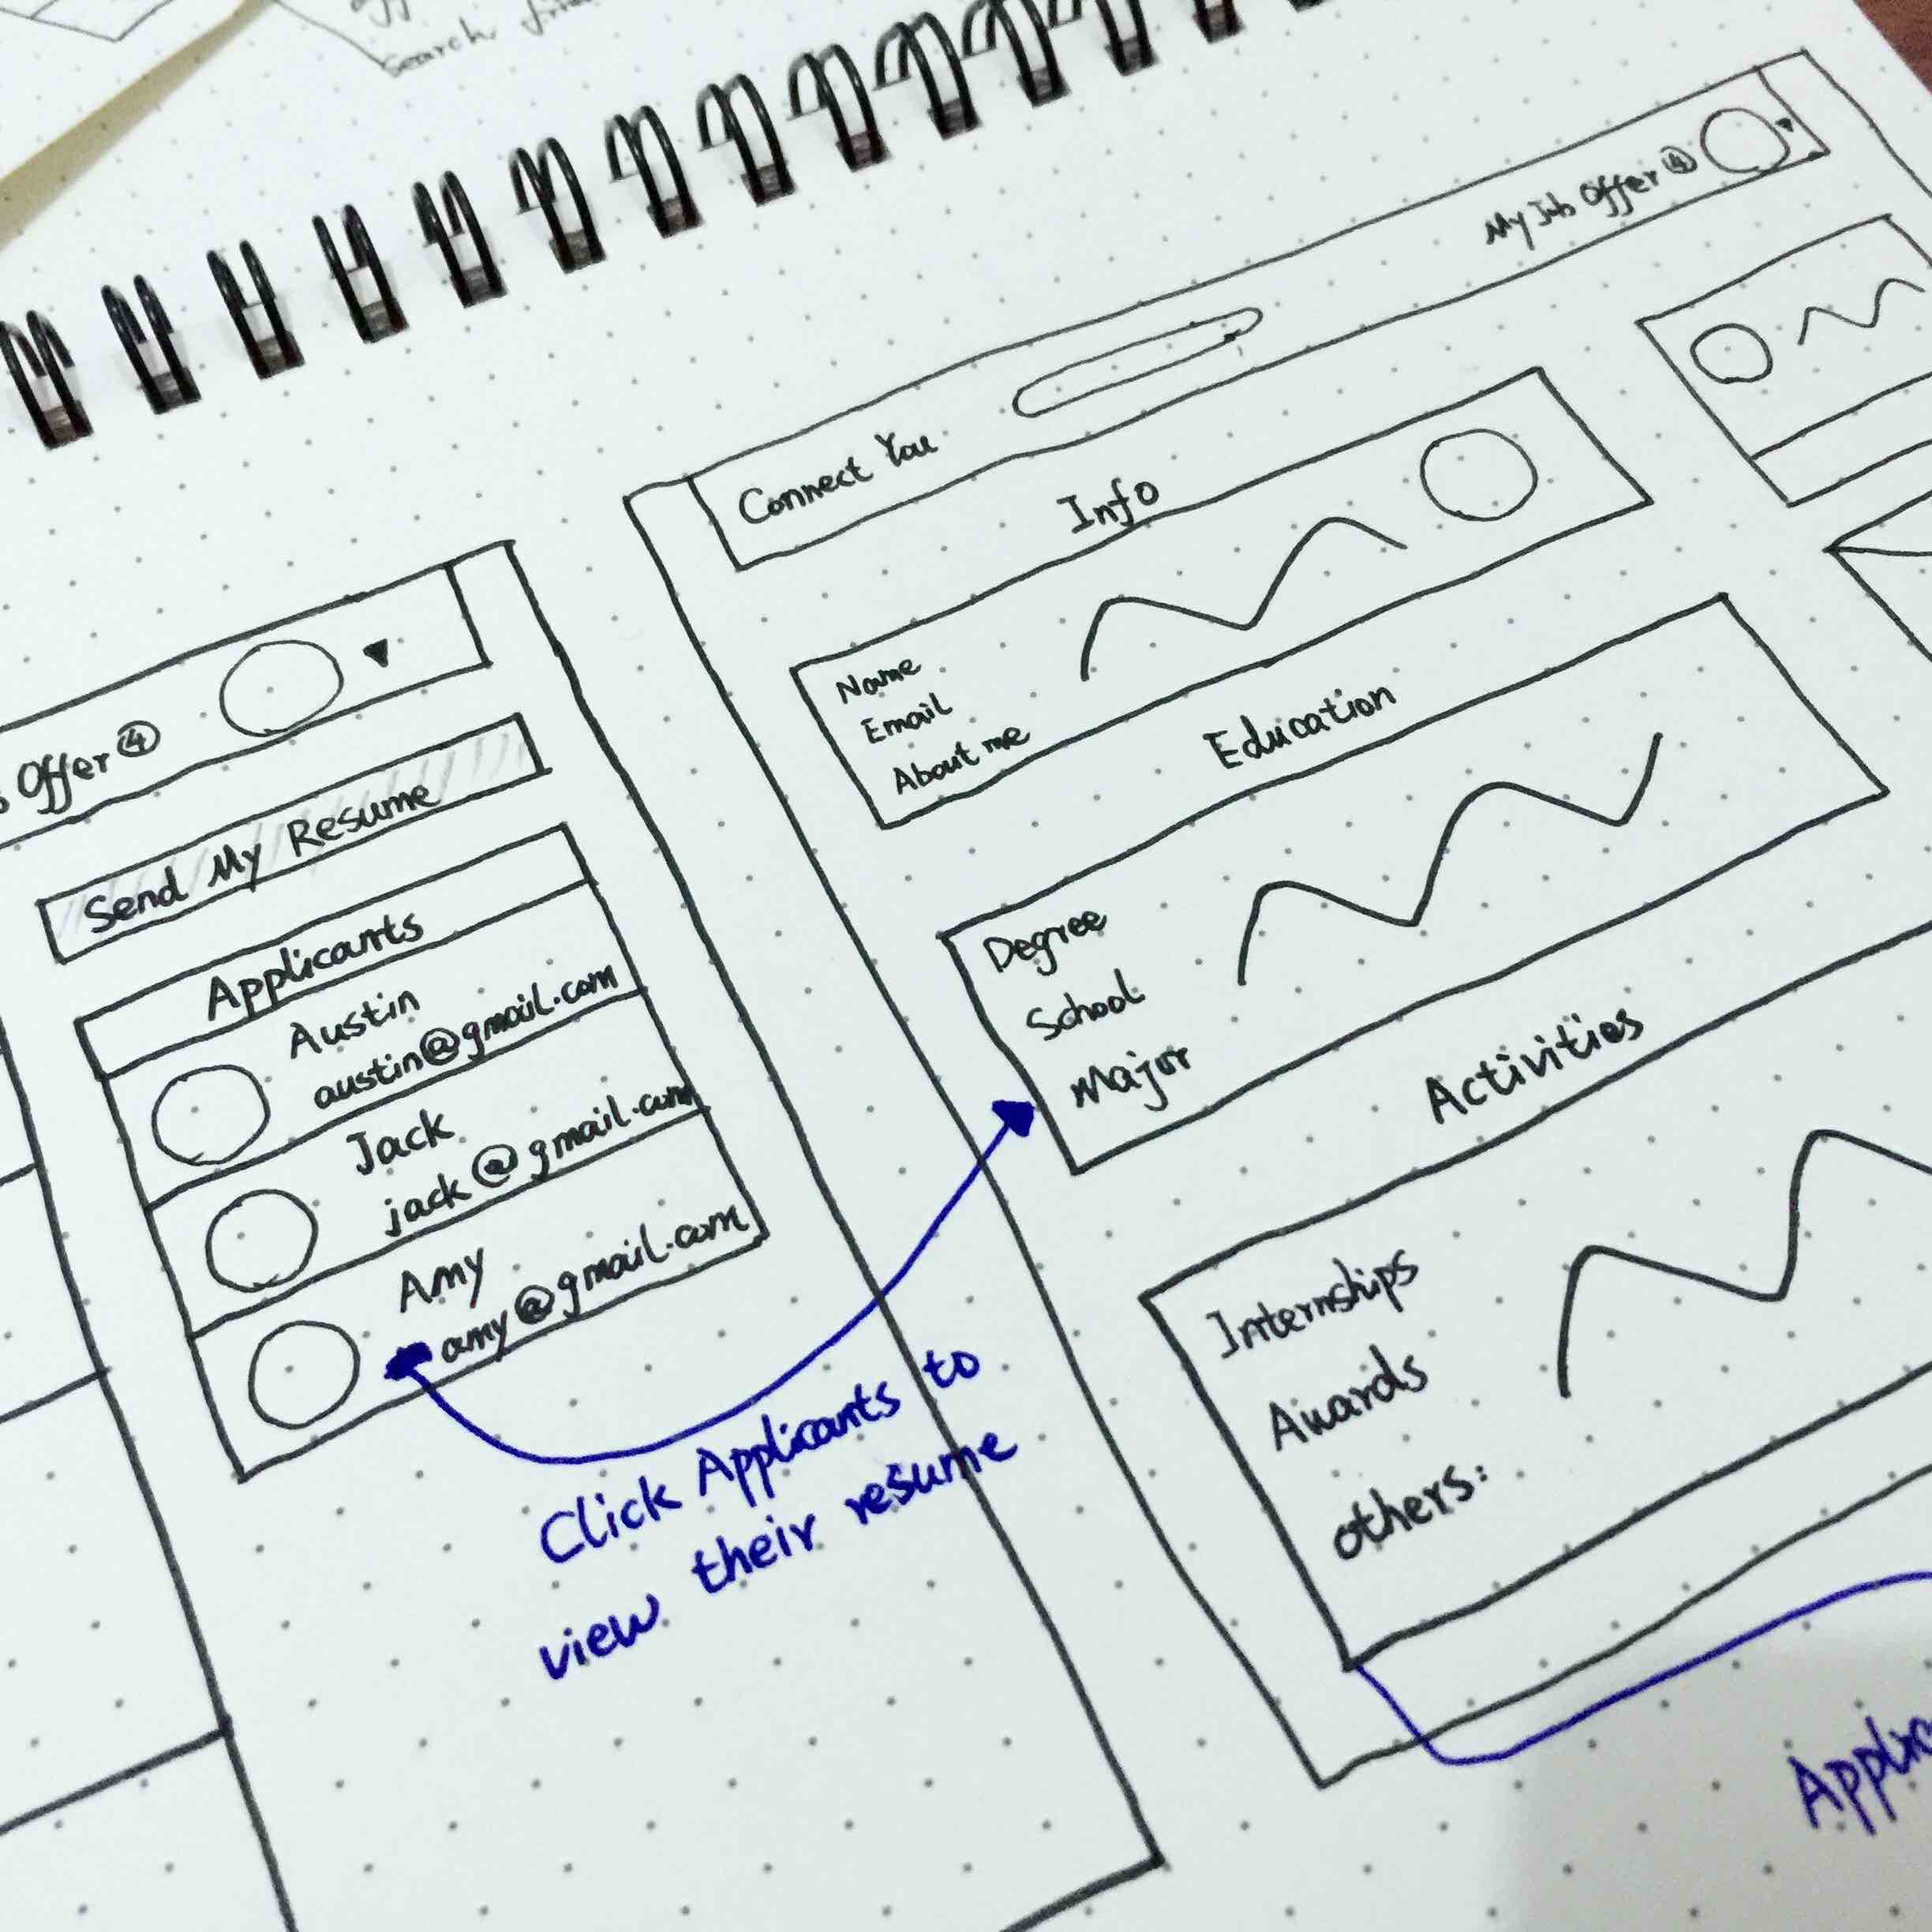 search
Offer ④
Send My Resume
Applicants
Austin
austin@gmail.com
Jack
jack@gmail.com
Amy
amy@gmail.com
Click Applicants to
view their resume
Connect You
My Job Offer ④
Info
Name
Email
About me
Education
Degree
School
Major
Activities
Internships
Awards
others: